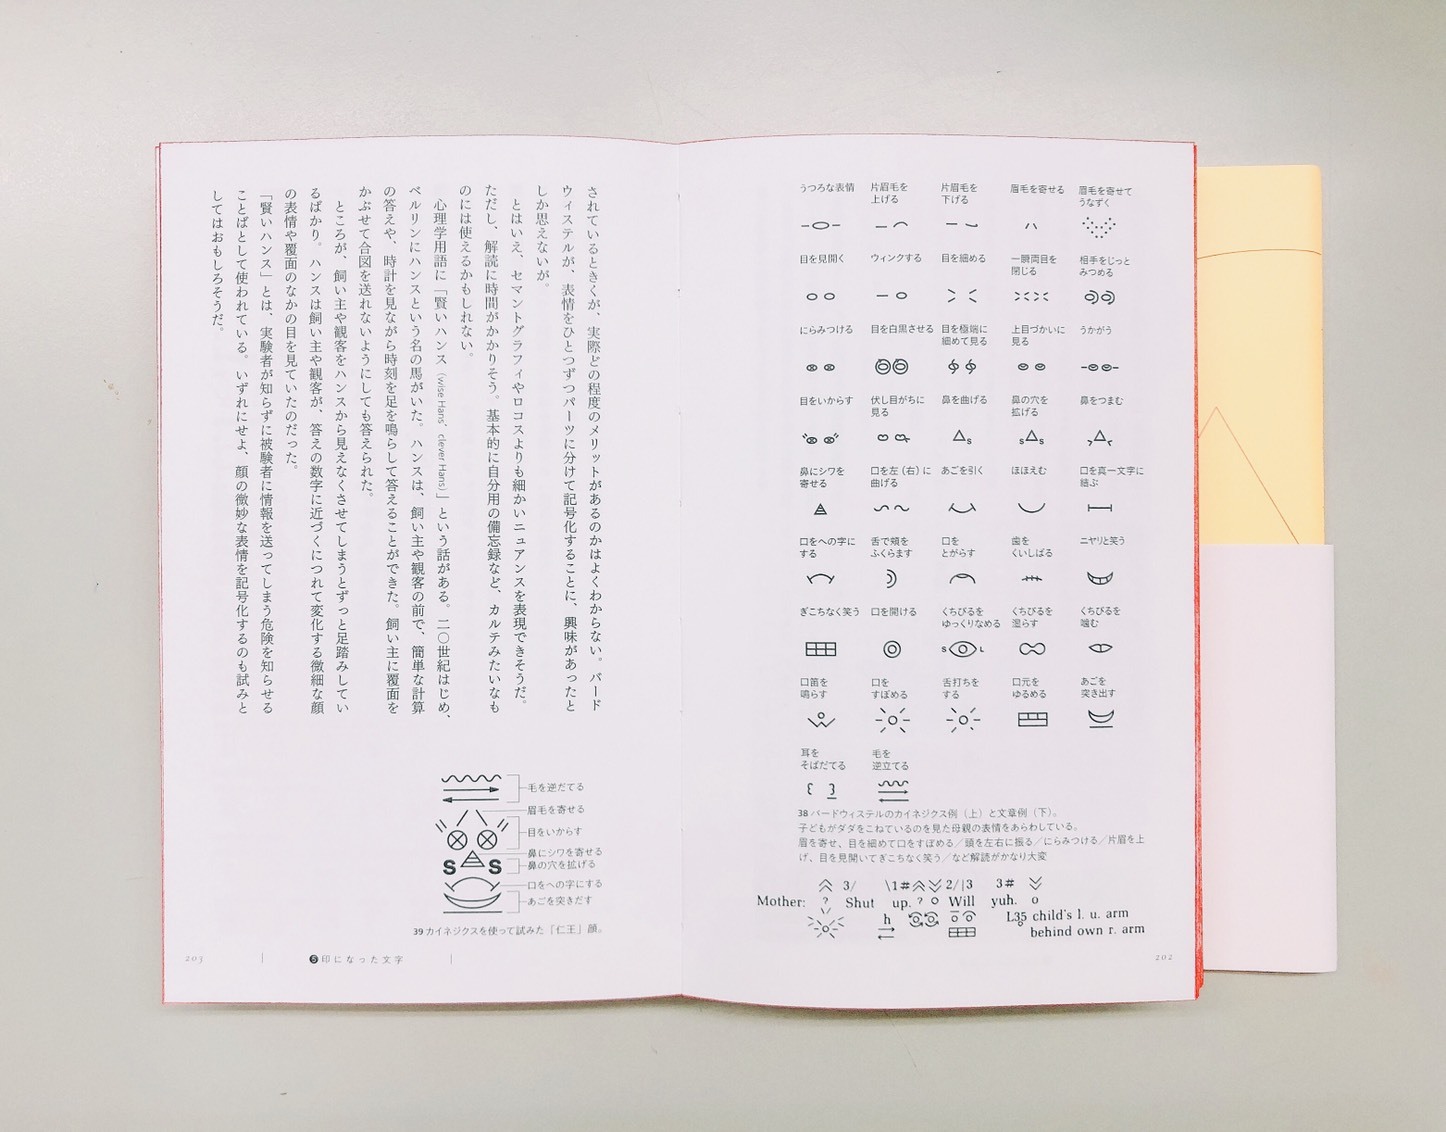 うつろな表情
片眉毛を
上げる
片眉毛を
下げる
眉毛を寄せる
眉毛を寄せて
うなずく
目を見開く
ウィンクする
目を細める
一瞬両目を
閉じる
相手をじっと
みつめる
にらみつける
目を白黒させる
目を極端に
細めて見る
上目づかいに
見る
うかがう
目をいからす
伏し目がちに
見る
鼻を曲げる
鼻の穴を
拡げる
鼻をつまむ
鼻にシワを
寄せる
口を左（右）に
曲げる
あごを引く
ほほえむ
口を真一文字に
結ぶ
口をへの字に
する
舌で頬を
ふくらます
口を
とがらす
歯を
くいしばる
ニヤリと笑う
ぎこちなく笑う
口を開ける
くちびるを
ゆっくりなめる
くちびるを
湿らす
くちびるを
噛む
口笛を
鳴らす
口を
すぼめる
舌打ちを
する
口元を
ゆるめる
あごを
突き出す
耳を
そばだてる
毛を
逆立てる
38 バードウィステルのカイネジクス例（上）と文章例（下）。
子どもがダダをこねているのを見た母親の表情をあらわしている。
眉を寄せ、目を細めて口をすぼめる／頭を左右に振る／にらみつける／片眉を上
げ、目を見開いてぎこちなく笑う／など解読がかなり大変
3/ \1# 2/|3 3#
Mother: ? Shut up. ? o Will yuh. o
h L35 child's l. u. arm
behind own r. arm
202
されているときくが、実際どの程度のメリットがあるのかはよくわからない。バード
ウィステルが、表情をひとつずつパーツに分けて記号化することに、興味があったと
しか思えないが。
とはいえ、セマントグラフィやロコスよりも細かいニュアンスを表現できそうだ。
ただし、解読に時間がかかりそう。基本的に自分用の備忘録など、カルテみたいなも
のには使えるかもしれない。
心理学用語に「賢いハンス（wise Hans, clever Hans）」という話がある。二〇世紀はじめ、
ベルリンにハンスという名の馬がいた。ハンスは、飼い主や観客の前で、簡単な計算
の答えや、時計を見ながら時刻を足を鳴らして答えることができた。飼い主に覆面を
かぶせて合図を送れないようにしても答えられた。
ところが、飼い主や観客をハンスから見えなくさせてしまうとずっと足踏みしてい
るばかり。ハンスは飼い主や観客が、答えの数字に近づくにつれて変化する微細な顔
の表情や覆面のなかの目を見ていたのだった。
「賢いハンス」とは、実験者が知らずに被験者に情報を送ってしまう危険を知らせる
ことばとして使われている。いずれにせよ、顔の微妙な表情を記号化するのも試みと
してはおもしろそうだ。
毛を逆だてる
眉毛を寄せる
目をいからす
鼻にシワを寄せる
鼻の穴を拡げる
口をへの字にする
あごを突きだす
39 カイネジクスを使って試みた「仁王」顔。
203
❺印になった文字